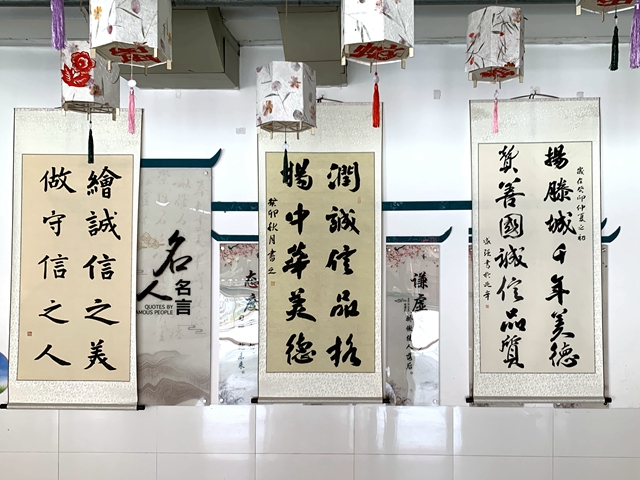 繪誠信之美
做守信之人
名人
名言
QUOTES BY
AMOUS PEOPLE
态度
潤誠信品格
揚中華美德
癸卯秋月書之
谦虚
歲在癸卯仲夏之初
揚滕城千年美德
贊善國誠信品質